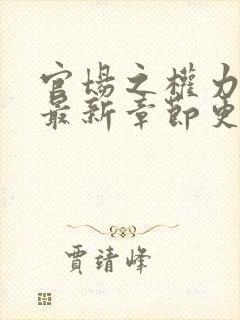 官場之權力
最新章節更
賈靖峰